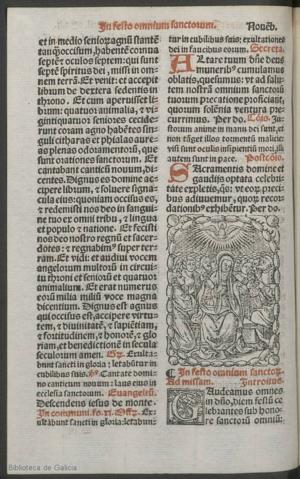 In festo omnium sanctorum.
Nouēb.
et in medio seniorū agnū stantē
tanq̄ occisum, habentē cornua
septē et oculos septem: qui sunt
septē spiritus dei, missi in om-
nem terrā. Et venit: et accepit
librum de dextera sedentis in
throno. Et cum aperuisset li-
brum: quatuor animalia, et vi-
gintiquatuor seniores cecide-
runt coram agno habētes sin-
guli citharas et phialas aure-
as plenas odoramentorū, que
sunt orationes sanctorum. Et
cantabant canticū nouum, di-
centes. Dignus es domine ac-
cipere librum, et soluere signa-
cula eius: quoniam occisus es,
et redemisti nos deo in sangui-
ne tuo ex omni tribu, et lingua
et populo et natione. Et fecisti
nos deo nostro regnū et sacer-
dotes: et regnabimꝰ super ter-
ram. Et vidi: et audiui vocem
angelorum multorū in circui-
tu throni et seniorū et quatuor
animalium. Et erat numerus
eorū milia miliū voce magna
dicentium. Dignus est agnus
qui occisus est, accipere virtu-
tem, et diuinitatē, et sapiētiam,
et fortitudinem, et honorē, et glo
riam, et benedictionē in secula
seculorum amen. Gr̄. Exulta-
bunt sancti in gloria: letabūtur in
cubilibus suis. Cantate domi-
no canticum nouum: laus eius in
ecclesia sanctorum. Euangeliū.
Descendens iesus de monte.
In communi. Offꝫ. Ex-
ultabunt sancti in gloria: letabun-
tur in cubilibus suis: exultationes
dei in faucibus eorum. Secreta.
Altare tuum dn̄e deus
muneribꝰ cumulamus
oblatis, quesumus: vt ad salu-
tem nostrā omnium sanctorū
tuorum precatione proficiant,
quorum solēnia ventura pre-
currimus. Per do. Cōio. Ju-
storum anime in manu dei sunt, et
non tāget illos tormentū malicie:
visi sunt oculis insipientiū mori, illi
autem sunt in pace. Postcōio.
Sacramentis domine et
gaudiis optata celebrita-
te expletis, q̄s: vt eorū preci-
bus adiuuemur, quorū recor-
dationibꝰ exhibētur. Per do.
In festo omnium sanctorꝫ.
Ad missam. Introitus.
Gaudeamus omnes
in dn̄o, diem festū ce
lebrantes sub hono-
re sanctorū omniū:
Biblioteca de Galicia